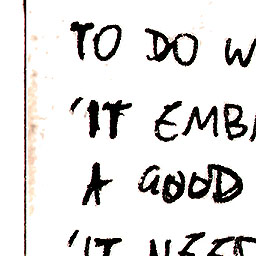 TO DO W
'IT EMB
A GOOD
'IT NEED